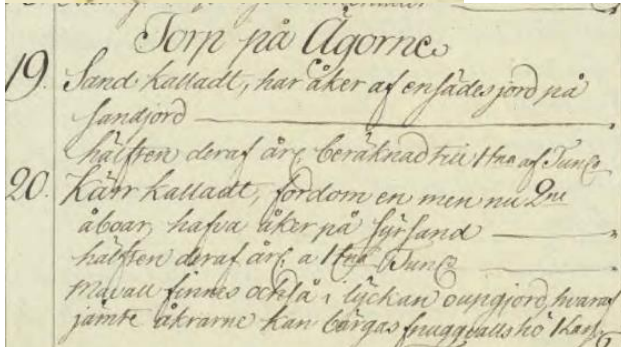 Torp på Ägorne
19. Sand kalladt, har åker af ensädes jord på
sandjord
hälften deraf årl. beräknad till 1 tna af Tun
20. Kärr kalladt, fordom en men nu 2ne
åboar, hafva åker på syrsand
hälften deraf årl. a 1 tna Tun
Mavall finnes också i lyckan oupgjord, hvaraf
jämte åkrarne kan bärgas snuggvallshö 1